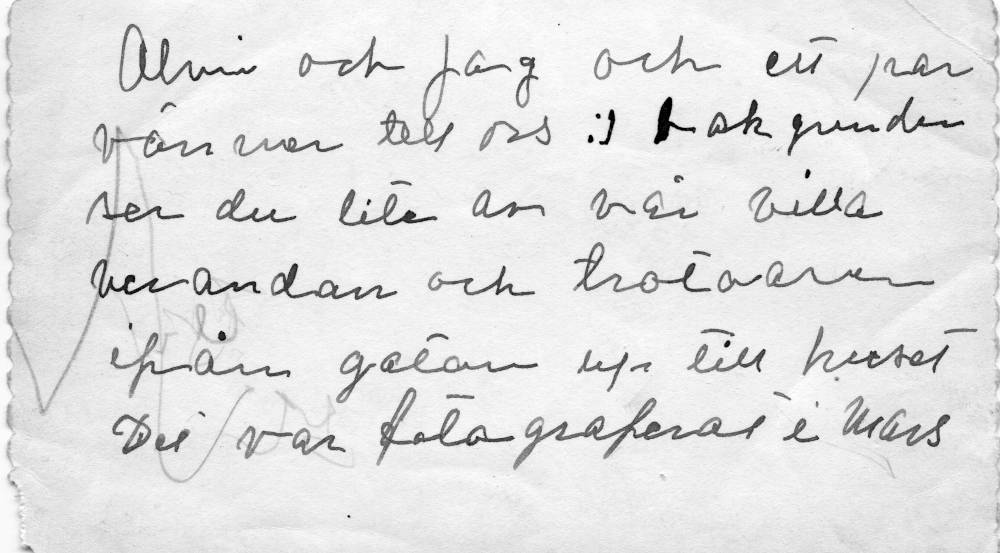 Alvin och jag och ett par
vänner till oss i bakgrunden
ser du lite av vår villa
verandan och trotoaren
ifrån gatan up till huset
Det var fotograferat i Mars